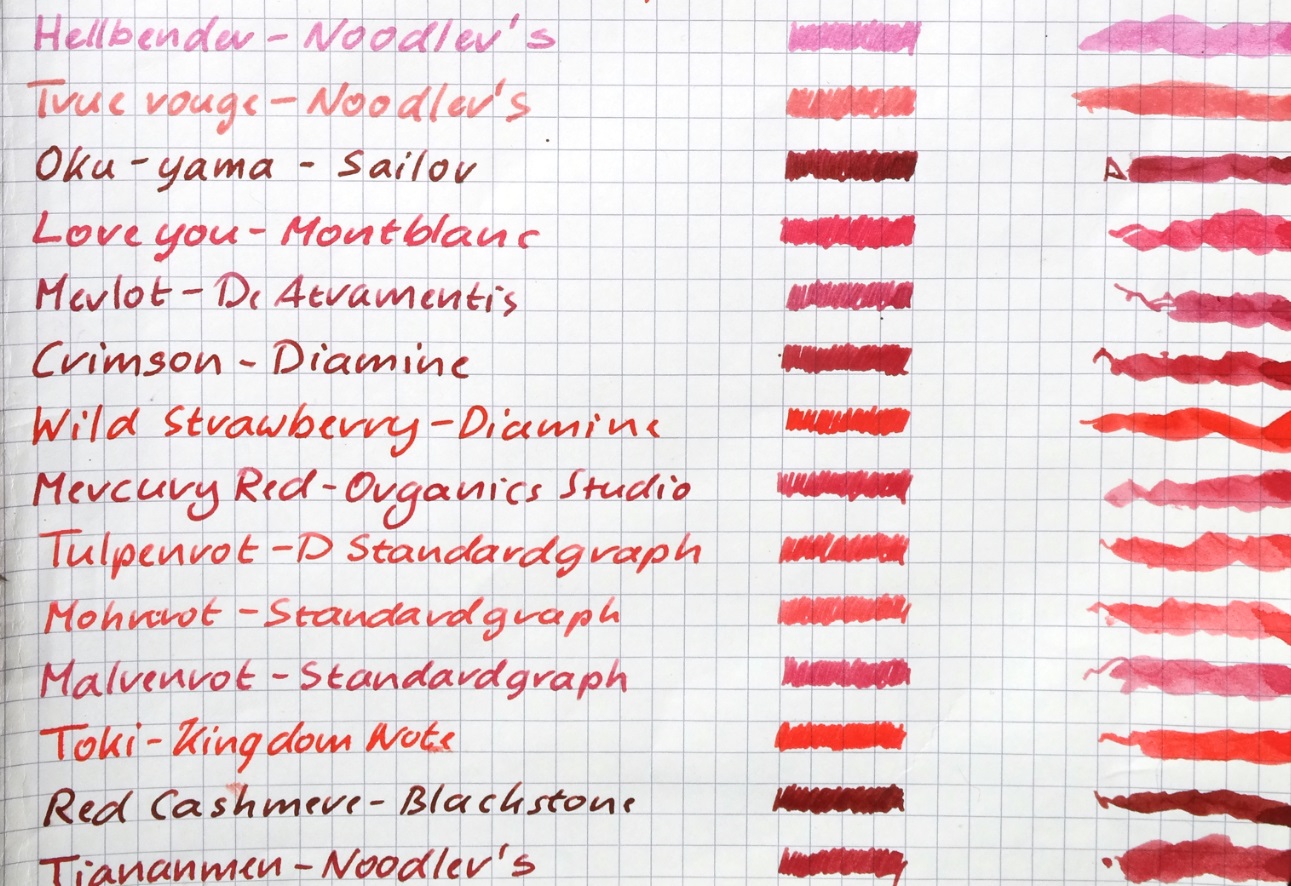 Hellbender - Noodler's
True rouge - Noodler's
Oku-yama - Sailor
Love you - Montblanc
Merlot - De Atramentis
Crimson - Diamine
Wild Strawberry - Diamine
Mercury Red - Organics Studio
Tulpenrot - D Standardgraph
Mohnrot - Standardgraph
Malvenrot - Standardgraph
Toki - Kingdom Note
Red Cashmere - Blackstone
Tiananmen - Noodler's